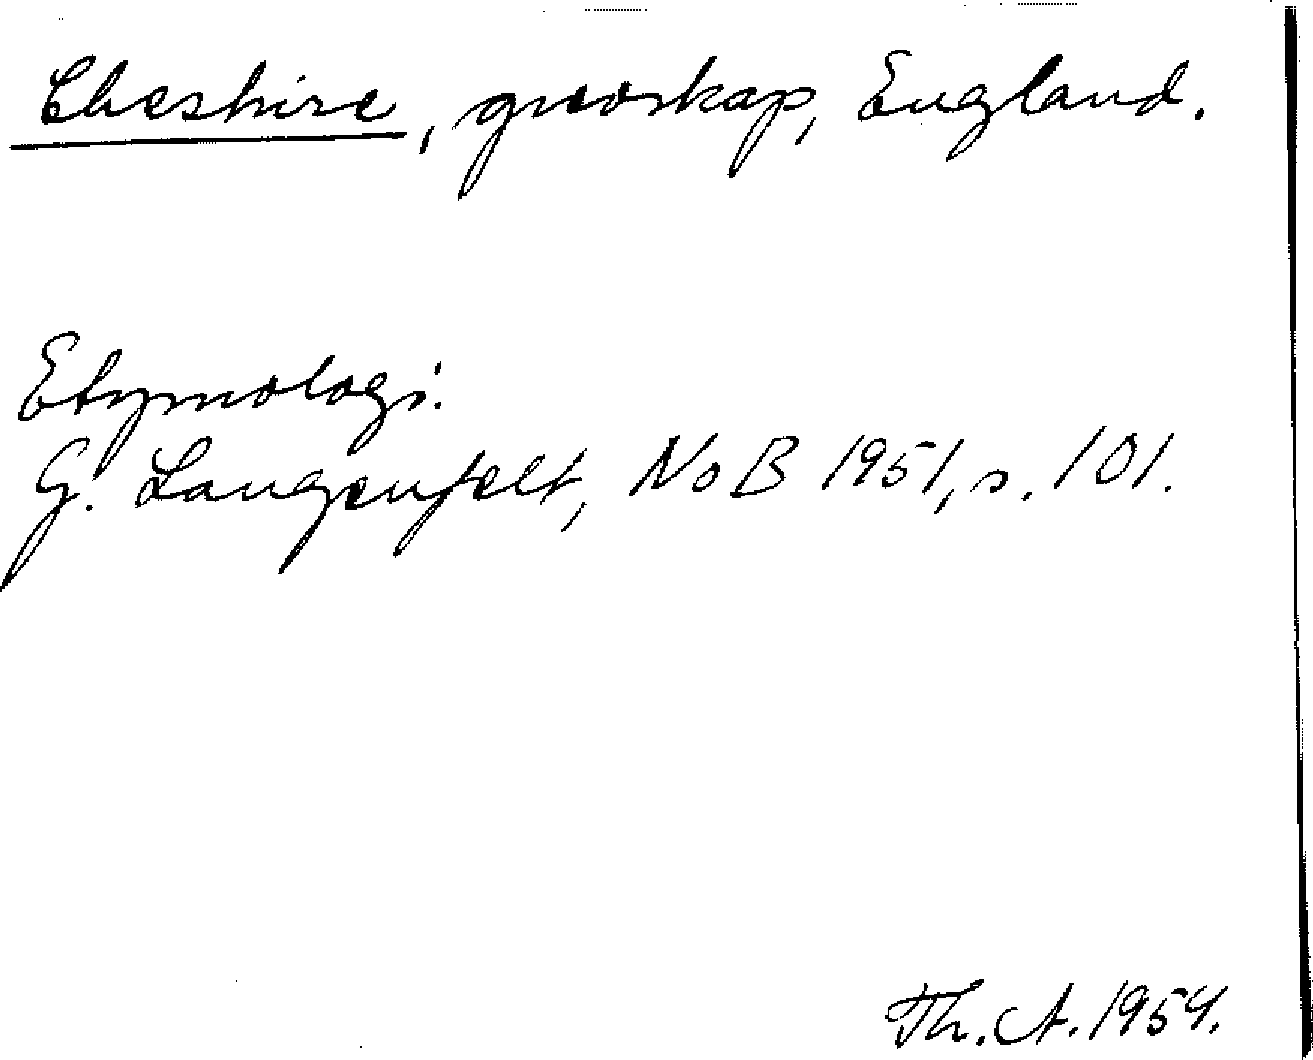 Cheshire, grevskap, England.
Etymologi:
G. Langenfelt, NoB 1951, s. 101.
Th. A. 1954.